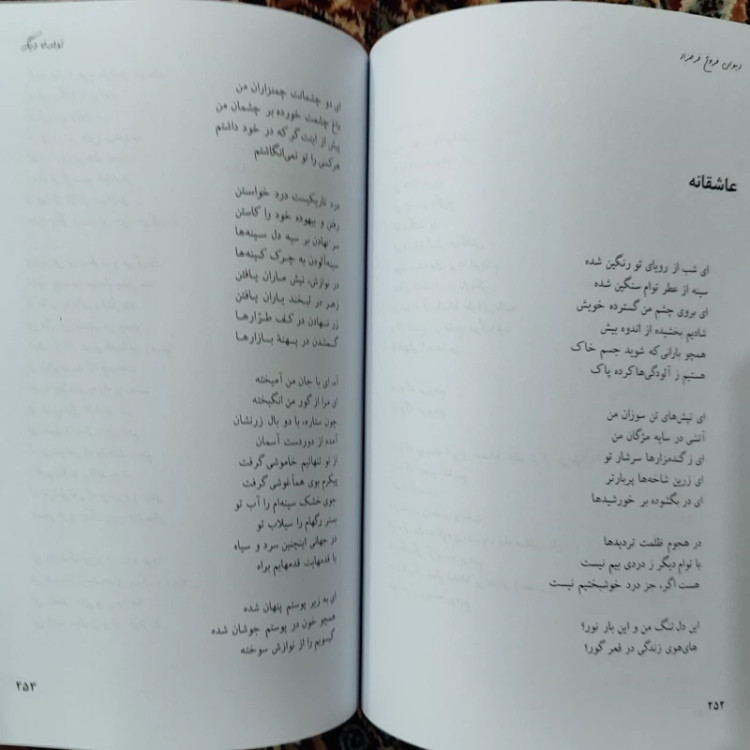 دیوان فروغ فرخزاد
عاشقانه
ای شب از رویای تو رنگین شده
سینه از عطر توام سنگین شده
ای بروی چشم من گسترده خویش
شادیم بخشیده از اندوه بیش
همچو بارانی که شوید جسم خاک
هستیم ز آلودگی‌ها کرده پاک
ای تپش‌های تن سوزان من
آتشی در سایه مژگان من
ای ز گندمزارها سرشار تر
ای ز زرین شاخه‌ها پربارتر
ای در بگشوده بر خورشیدها
در هجوم ظلمت تردیدها
با توام دیگر ز دردی بیم نیست
هست اگر، جز درد خوشبختیم نیست
این دل تنگ من و این بار نور؟
های‌هوی زندگی در قعر گور؟
۲۵۲
تولدی دیگر
ای دو چشمانت چمنزاران من
داغ چشمت خورده بر چشمان من
پیش از اینت گر که در خود داشتم
هرکسی را تو نمی‌انگاشتم
درد تاریکیست درد خواستن
رفتن و بیهوده خود را کاستن
سر نهادن بر سیه دل سینه‌ها
سینه آلودن به چرک کینه‌ها
در نوازش، نیش ماران یافتن
زهر در لبخند یاران یافتن
زر نهادن در کف طرارها
گمشدن در پهنهٔ بازارها
آه، ای با جان من آمیخته
ای مرا از گور من انگیخته
چون ستاره، با دو بال زرنشان
آمده از دوردست آسمان
از تو تنهائیم خاموشی گرفت
پیکرم بوی همآغوشی گرفت
جوی خشک سینه‌ام را آب تو
بستر رگهام را سیلاب تو
در جهانی اینچنین سرد و سیاه
با قدمهایت قدمهایم براه
ای به زیر پوستم پنهان شده
همچو خون در پوستم جوشان شده
گیسویم را از نوازش سوخته
۲۵۳